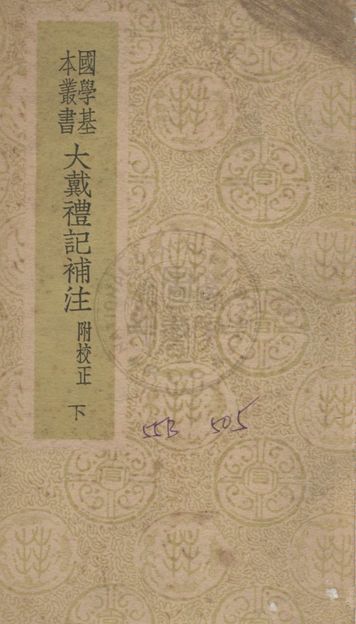 國學基
本叢書
大戴禮記補注
附校正
下
55B 505